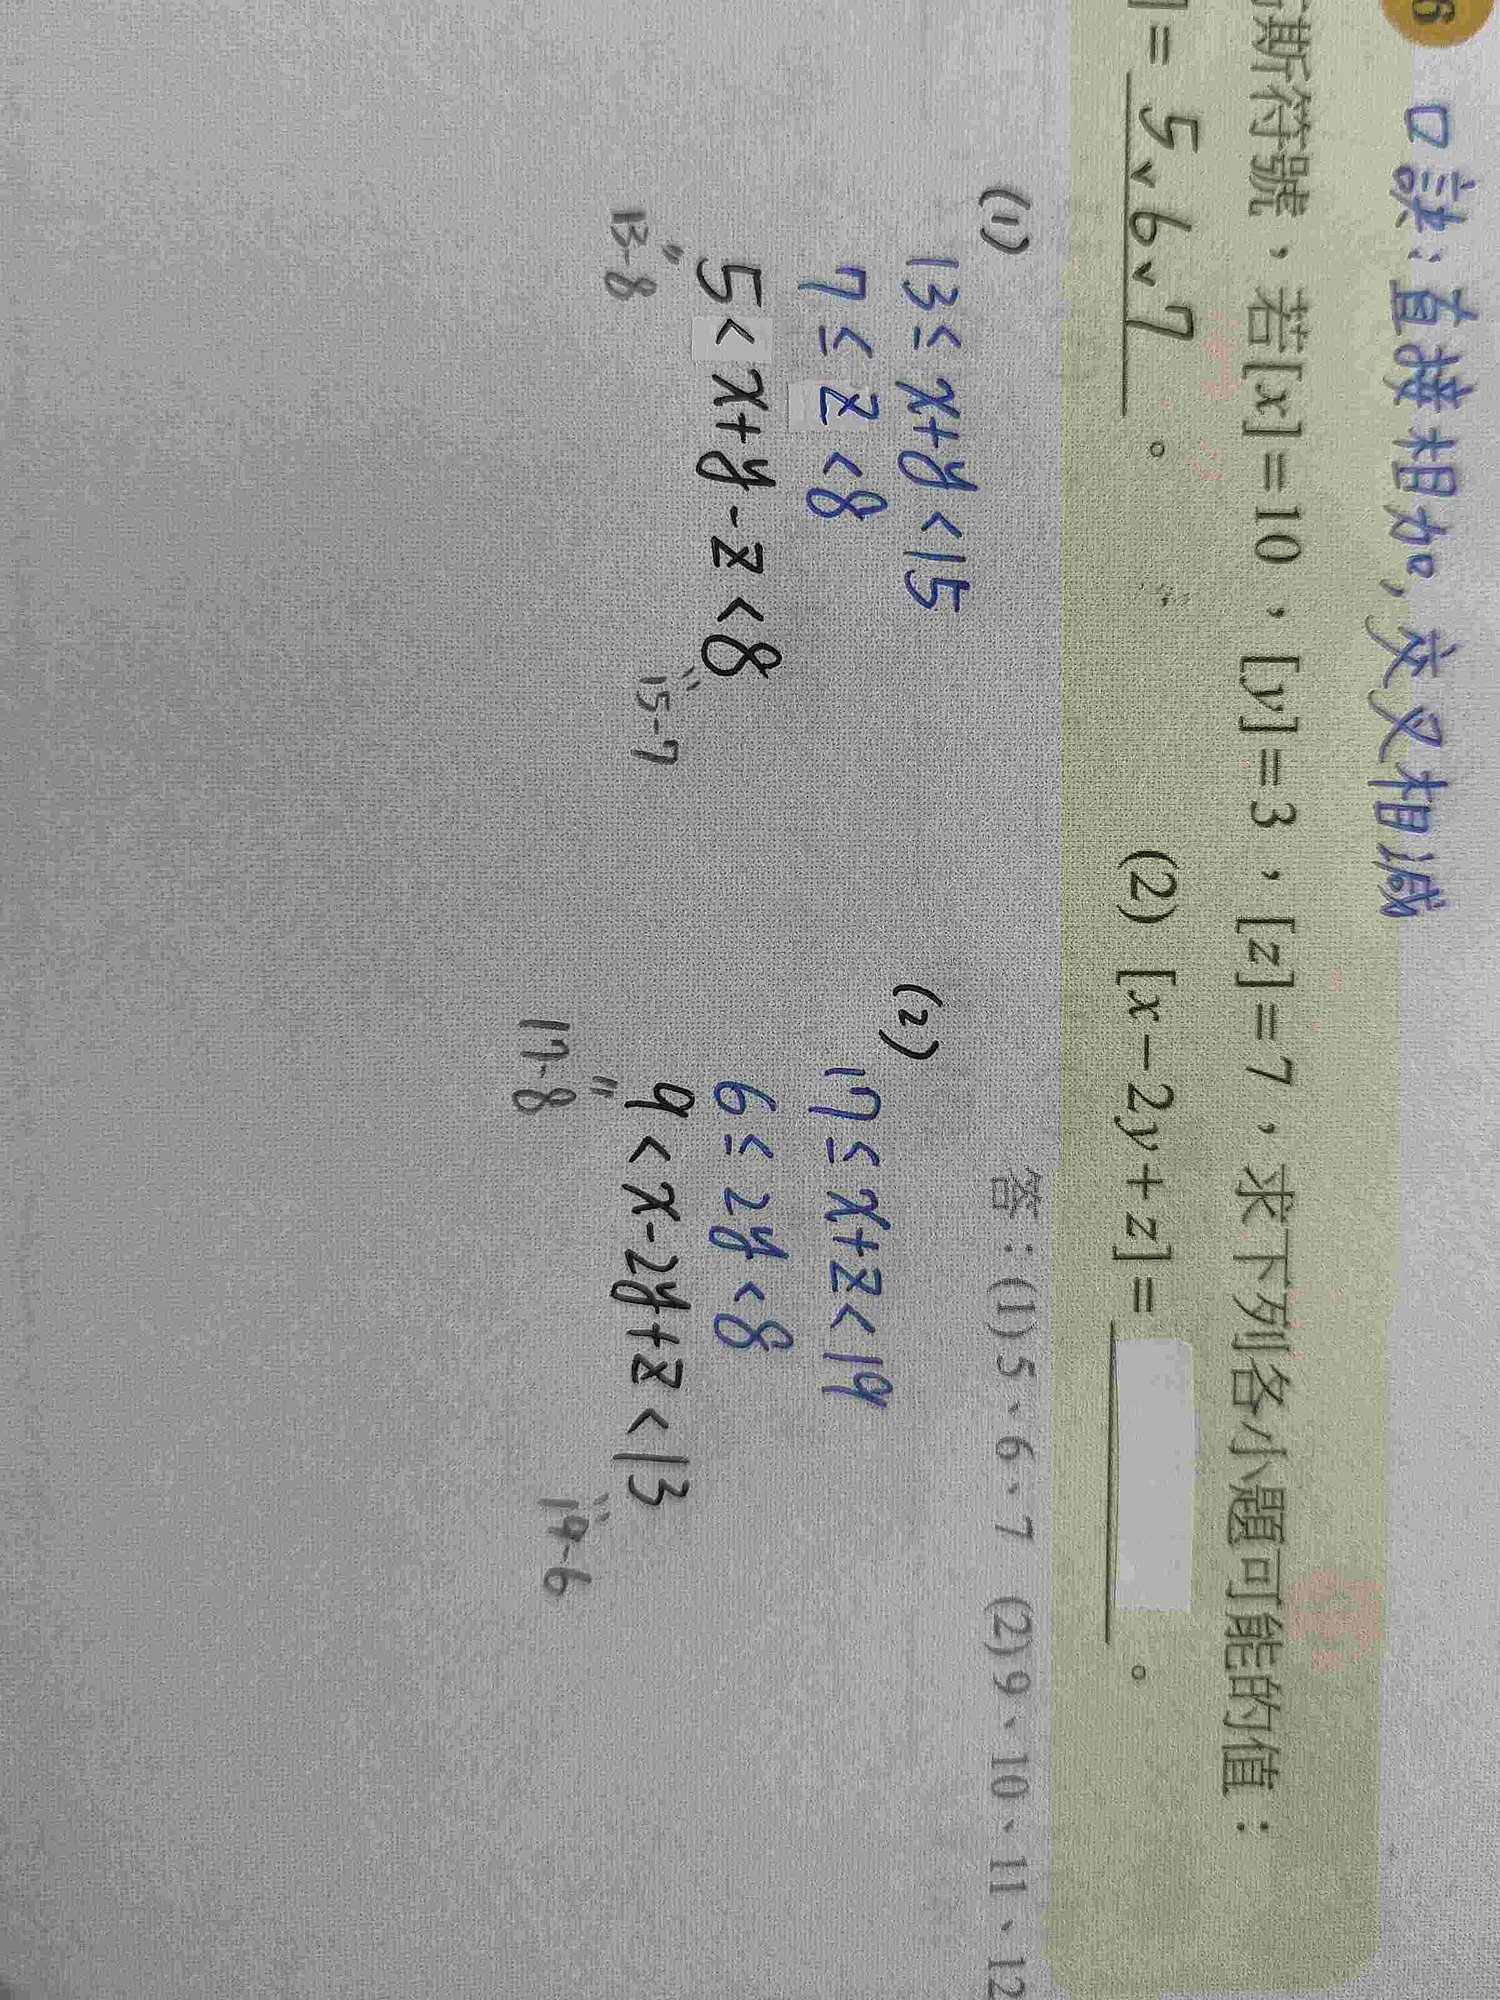 6 口訣:直接相加,交叉相減
斯符號,若[x]=10,[y]=3,[z]=7,求下列各小題可能的值:
]= 5、6、7 。 (2) [x-2y+z]= 。
答:(1) 5、6、7 (2) 9、10、11、12
(1)
13≤x+y<15
7≤z<8
5<x+y-z<8
" "
13-8 15-7
(2)
17≤x+z<19
6≤2y<8
9<x-2y+z<13
" "
17-8 19-6